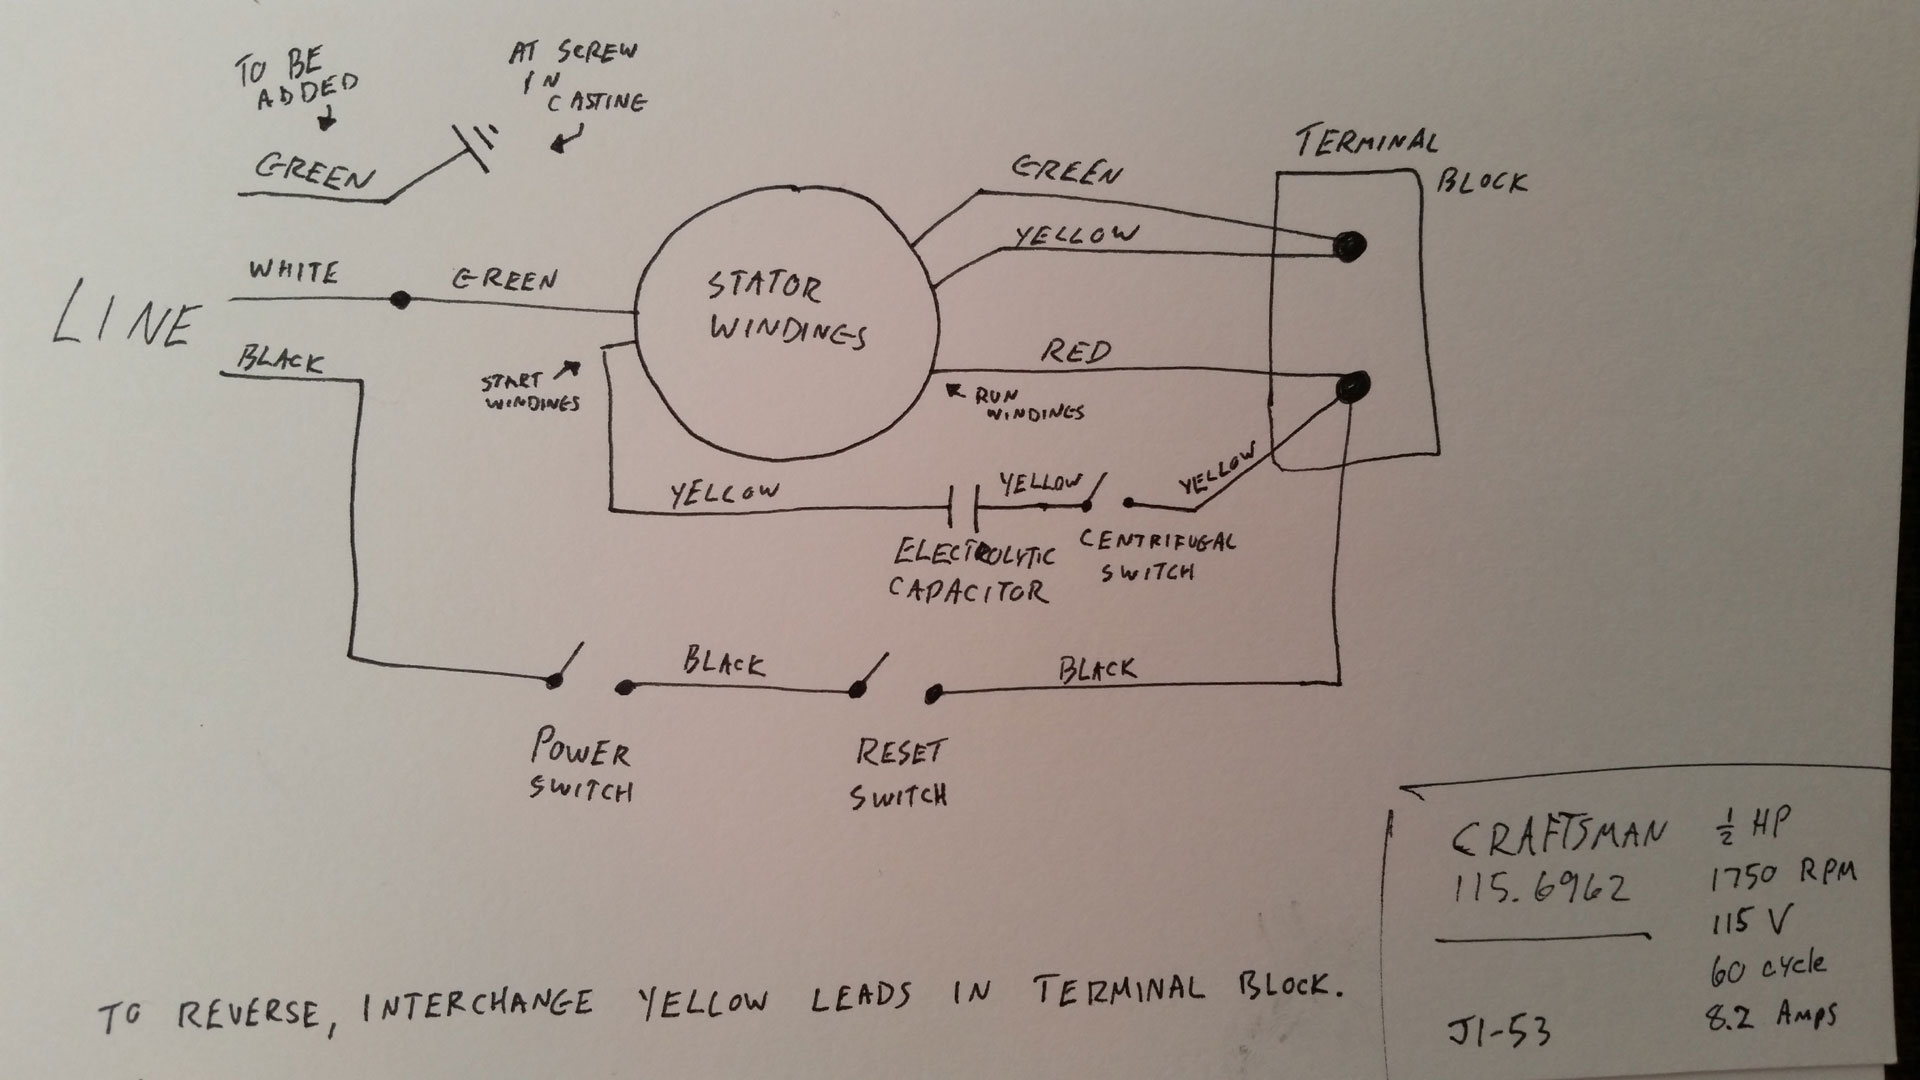 TO BE
ADDED
AT SCREW
IN
CASTING
GREEN
TERMINAL
BLOCK
GREEN
YELLOW
LINE
WHITE
GREEN
STATOR
WINDINGS
BLACK
START
WINDINGS
RED
RUN
WINDINGS
YELLOW
YELLOW
YELLOW
ELECTROLYTIC
CAPACITOR
CENTRIFUGAL
SWITCH
BLACK
BLACK
POWER
SWITCH
RESET
SWITCH
CRAFTSMAN
115.6962
J1-53
1/2 HP
1750 RPM
115 V
60 cycle
8.2 Amps
TO REVERSE, INTERCHANGE YELLOW LEADS IN TERMINAL BLOCK.